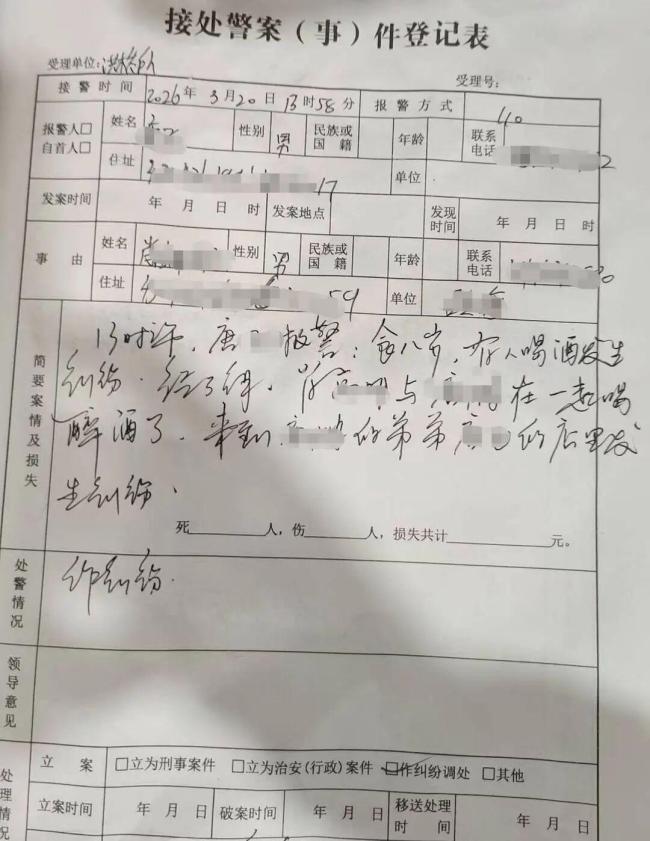 接处警案(事)件登记表
受理单位: 受理号:
接警时间 2026年3月20日13时58分 报警方式
报警人□ 自首人□ 姓名 性别 男 民族或国籍 年龄 联系电话
住址 17 单位
发案时间 年 月 日 时 发案地点 发现时间 年 月 日 时
事由 姓名 性别 男 民族或国籍 年龄 联系电话
住址 59 单位
简要案情及损失
13时许,唐 报警: 有人喝酒发生
纠纷.经了解, 与 在一起喝
醉酒了.来到 的弟弟 的店里发
生纠纷.
死 人,伤 人,损失共计 元。
处警情况
作纠纷.
领导意见
处理情况
立案 □立为刑事案件 □立为治安(行政)案件 □作纠纷调处 □其他
立案时间 年 月 日 破案时间 年 月 日 移送处理时间 年 月 日